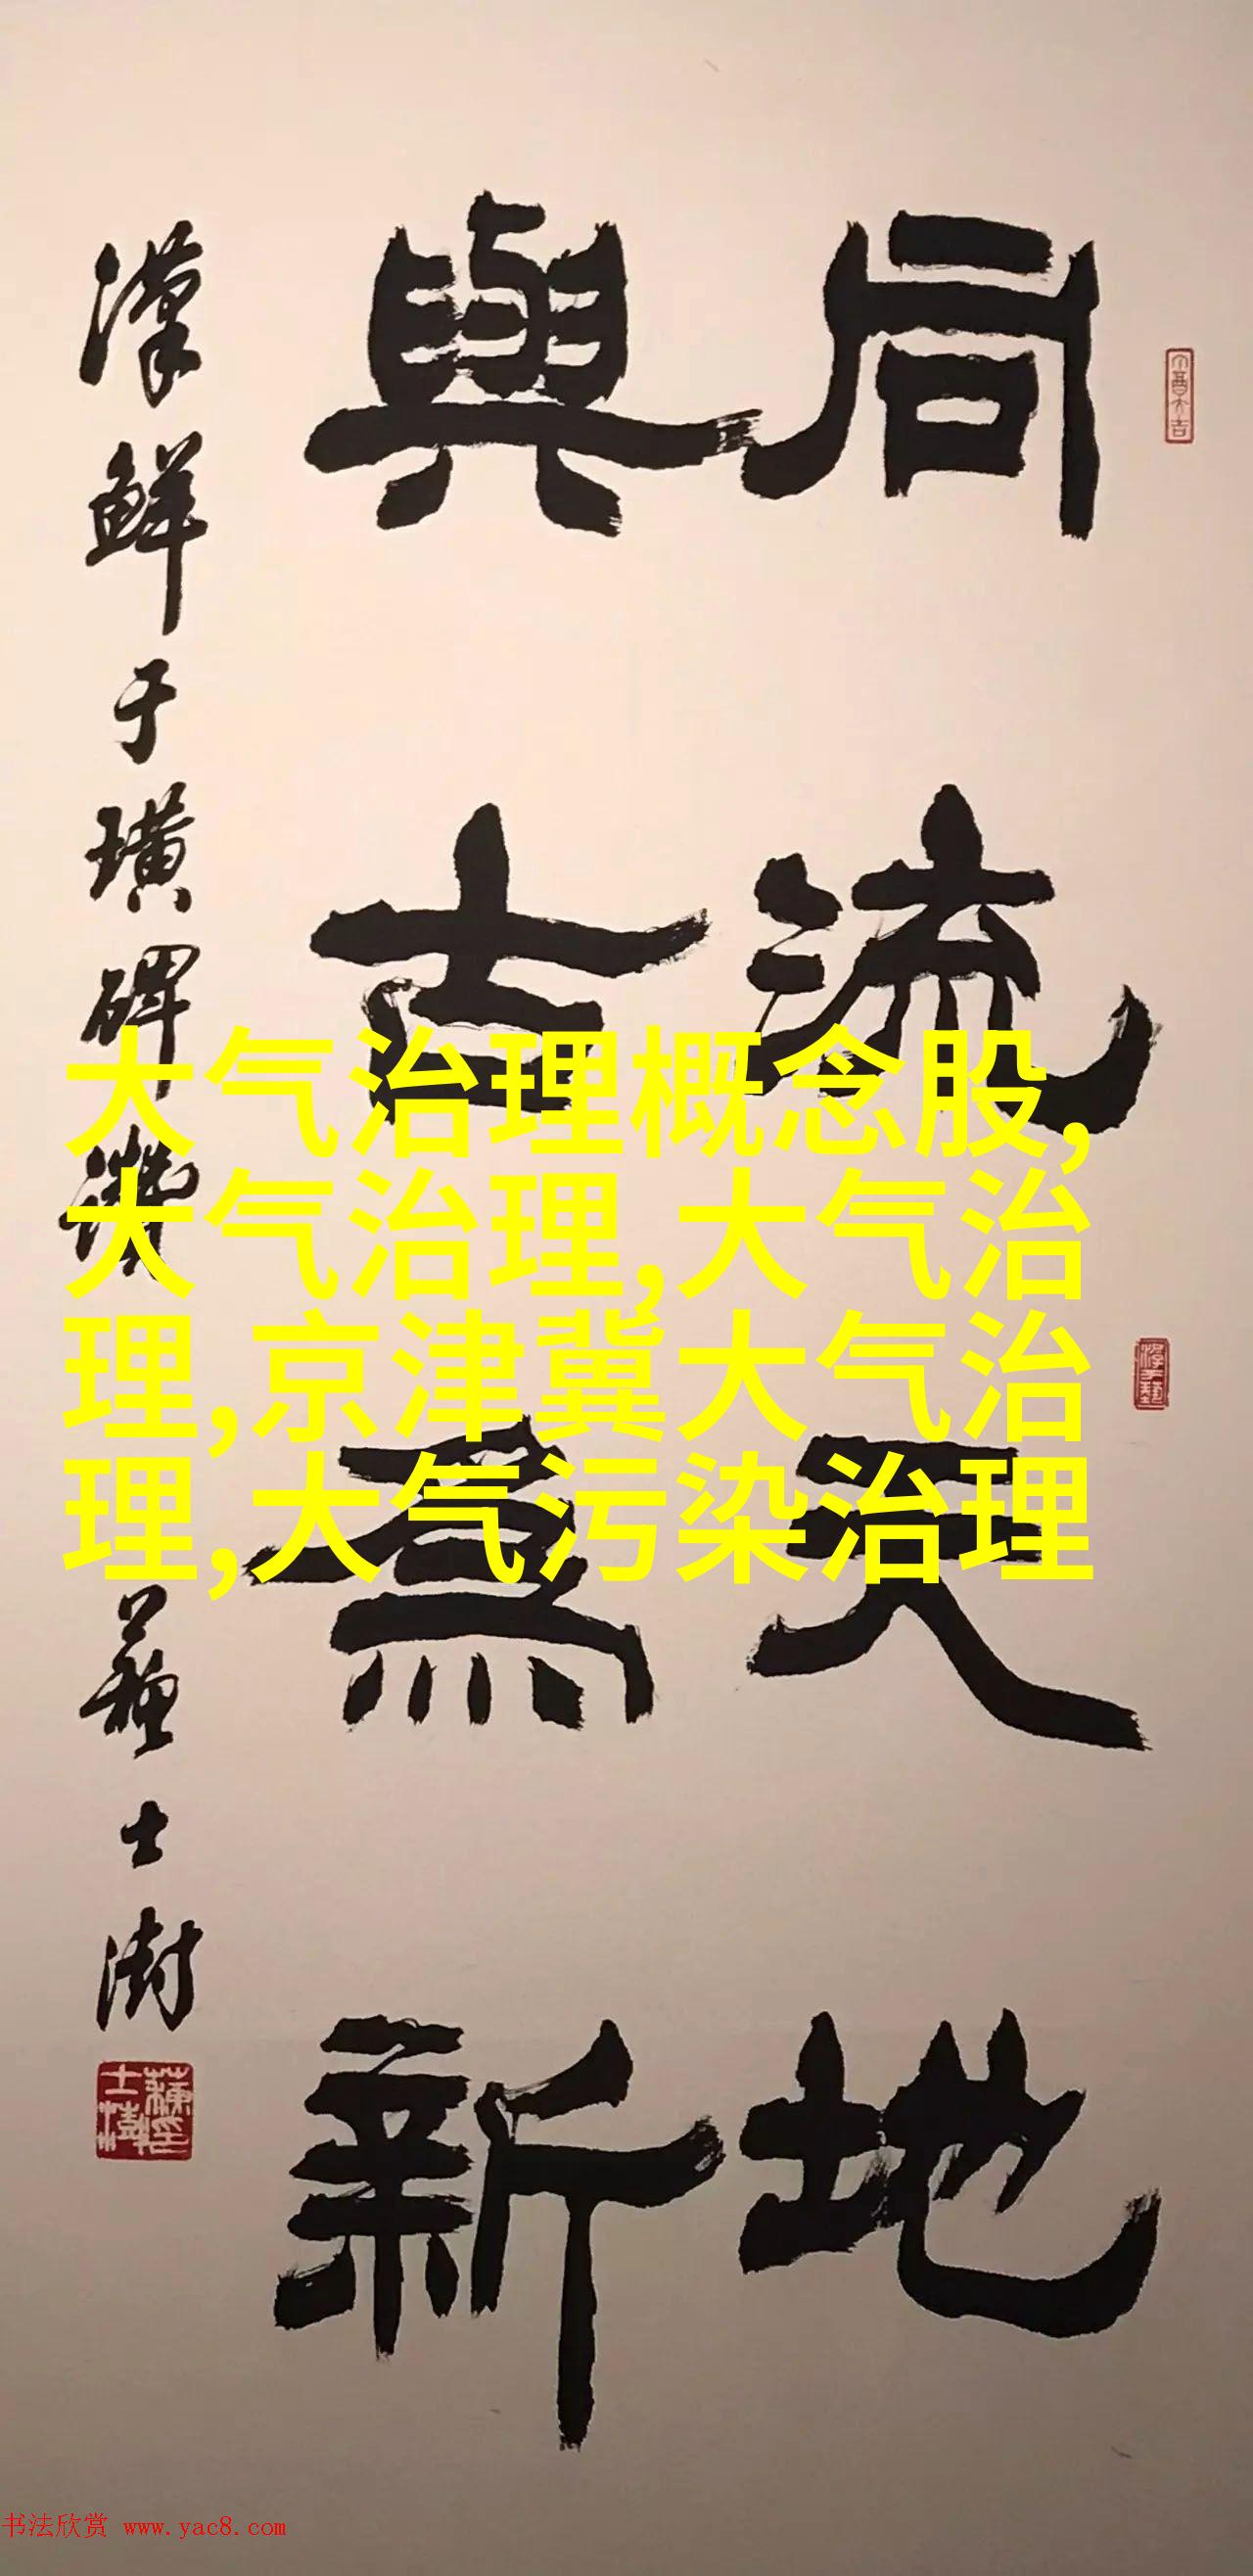 同流天地
與古爲新
漢鮮于璜碑
蘇士澍
大气治理概念股,
大气治理,大气治
理,京津冀大气治
理,大气污染治理
书法欣赏 www.yac8.com